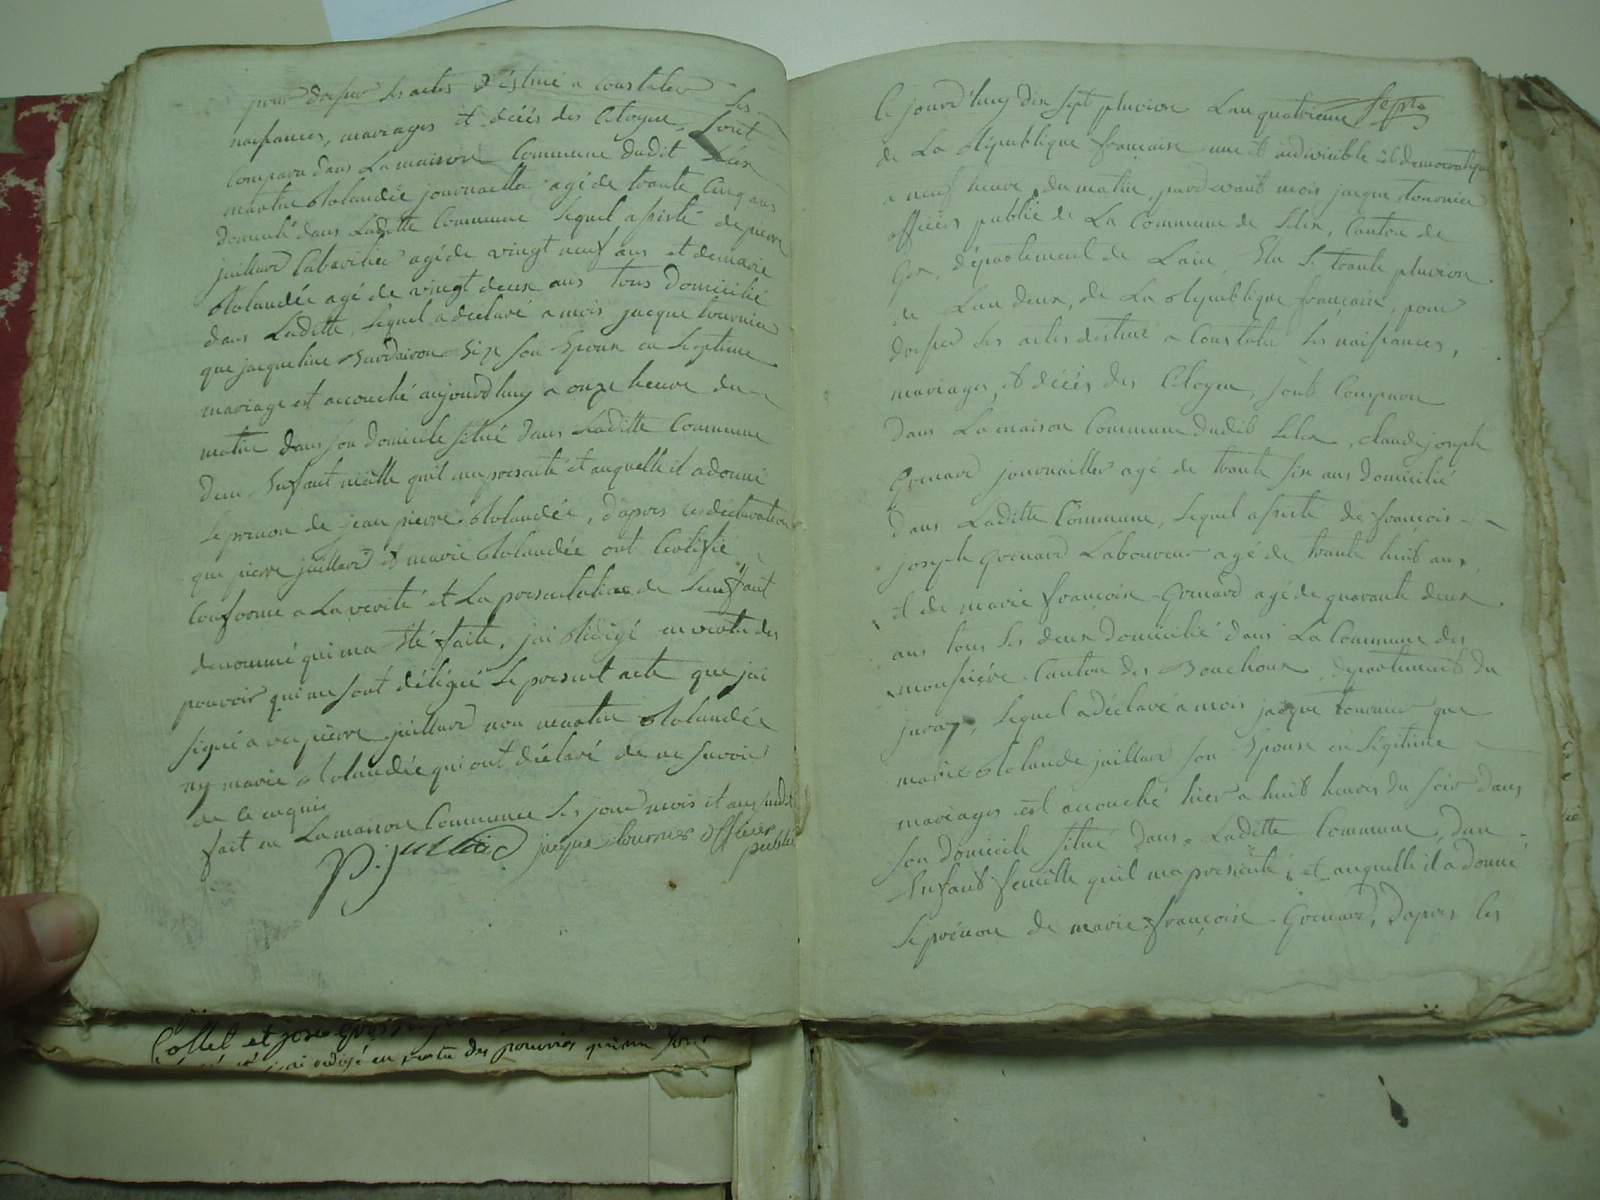 pour dresser les actes déstiné a constater les
naissances, mariages et décès des Citoyen, sont
comparu dans La maison Commune dudit Lelex
journailler agé de trante Cinq ans
domicilié dans Laditte Commune lequel assisté de pierre
juillard agé de vingt neuf ans et de marie
agé de vingt deux ans tous domicilié
dans Laditte, lequel a déclaré a mois jacque tournier
que jacqueline son Epouse en légitime
mariage est accouché aujourd'huy a onze heure du
matin dans son domicile situé dans Laditte Commune
dun Enfant mâlle quil ma presenté et auquelle il a donné
le prenom de jean pierre, d'apres ces déclaration
que pierre juillard et marie ont Certifié
Conforme a La verité et La presentation de Lenfant
denommé qui ma été faite, jai rédigé en vertu des
pouvoir qui me sont délégué Le present acte que jai
signé avec pierre juillard non
ny marie qui ont déclaré de ne savoir
de ce enquis
fait en La maison Commune Les jour mois et ans susdit
P. juillard jacque tournier officier
publié
Ce jourd'huy dix sept pluviose Lan quatrieme sept
de La République française une et indivicible et démocratique
a neuf heure du matin, pardevant mois jacque tournier
officier publié de La Commune de Lelex, Canton de
Gex, département de Lain, Elu le trante pluviose
de Lan deux, de La République française, pour
dresser les actes destiné a Constater les naissances,
mariages, et décès des Citoyen, sont Comparu
dans La maison Commune dudit Lelex, claude joseph
Grenard journailler agé de trante six ans domicilié
dans Laditte Commune, lequel assisté de françois
joseph Grenard Laboureur agé de trante huit ans,
et de marie françoise Grenard agé de quarante deux
ans tous les deux domicilié dans La Commune des
moussière Canton des Bouchoux, département du
jurax, lequel a déclaré a mois jacque tournier que
marie juillard son Epouse en Légitime
mariages est accouché hier a huit heures du soir dans
son domicile situé dans Laditte Commune, dun
Enfant femelle quil ma presenté, et auquelle il a donné
le prénom de marie françoise Grenard, dapres les
Collet et
rédigé en vertu des pouvoirs qui me sont